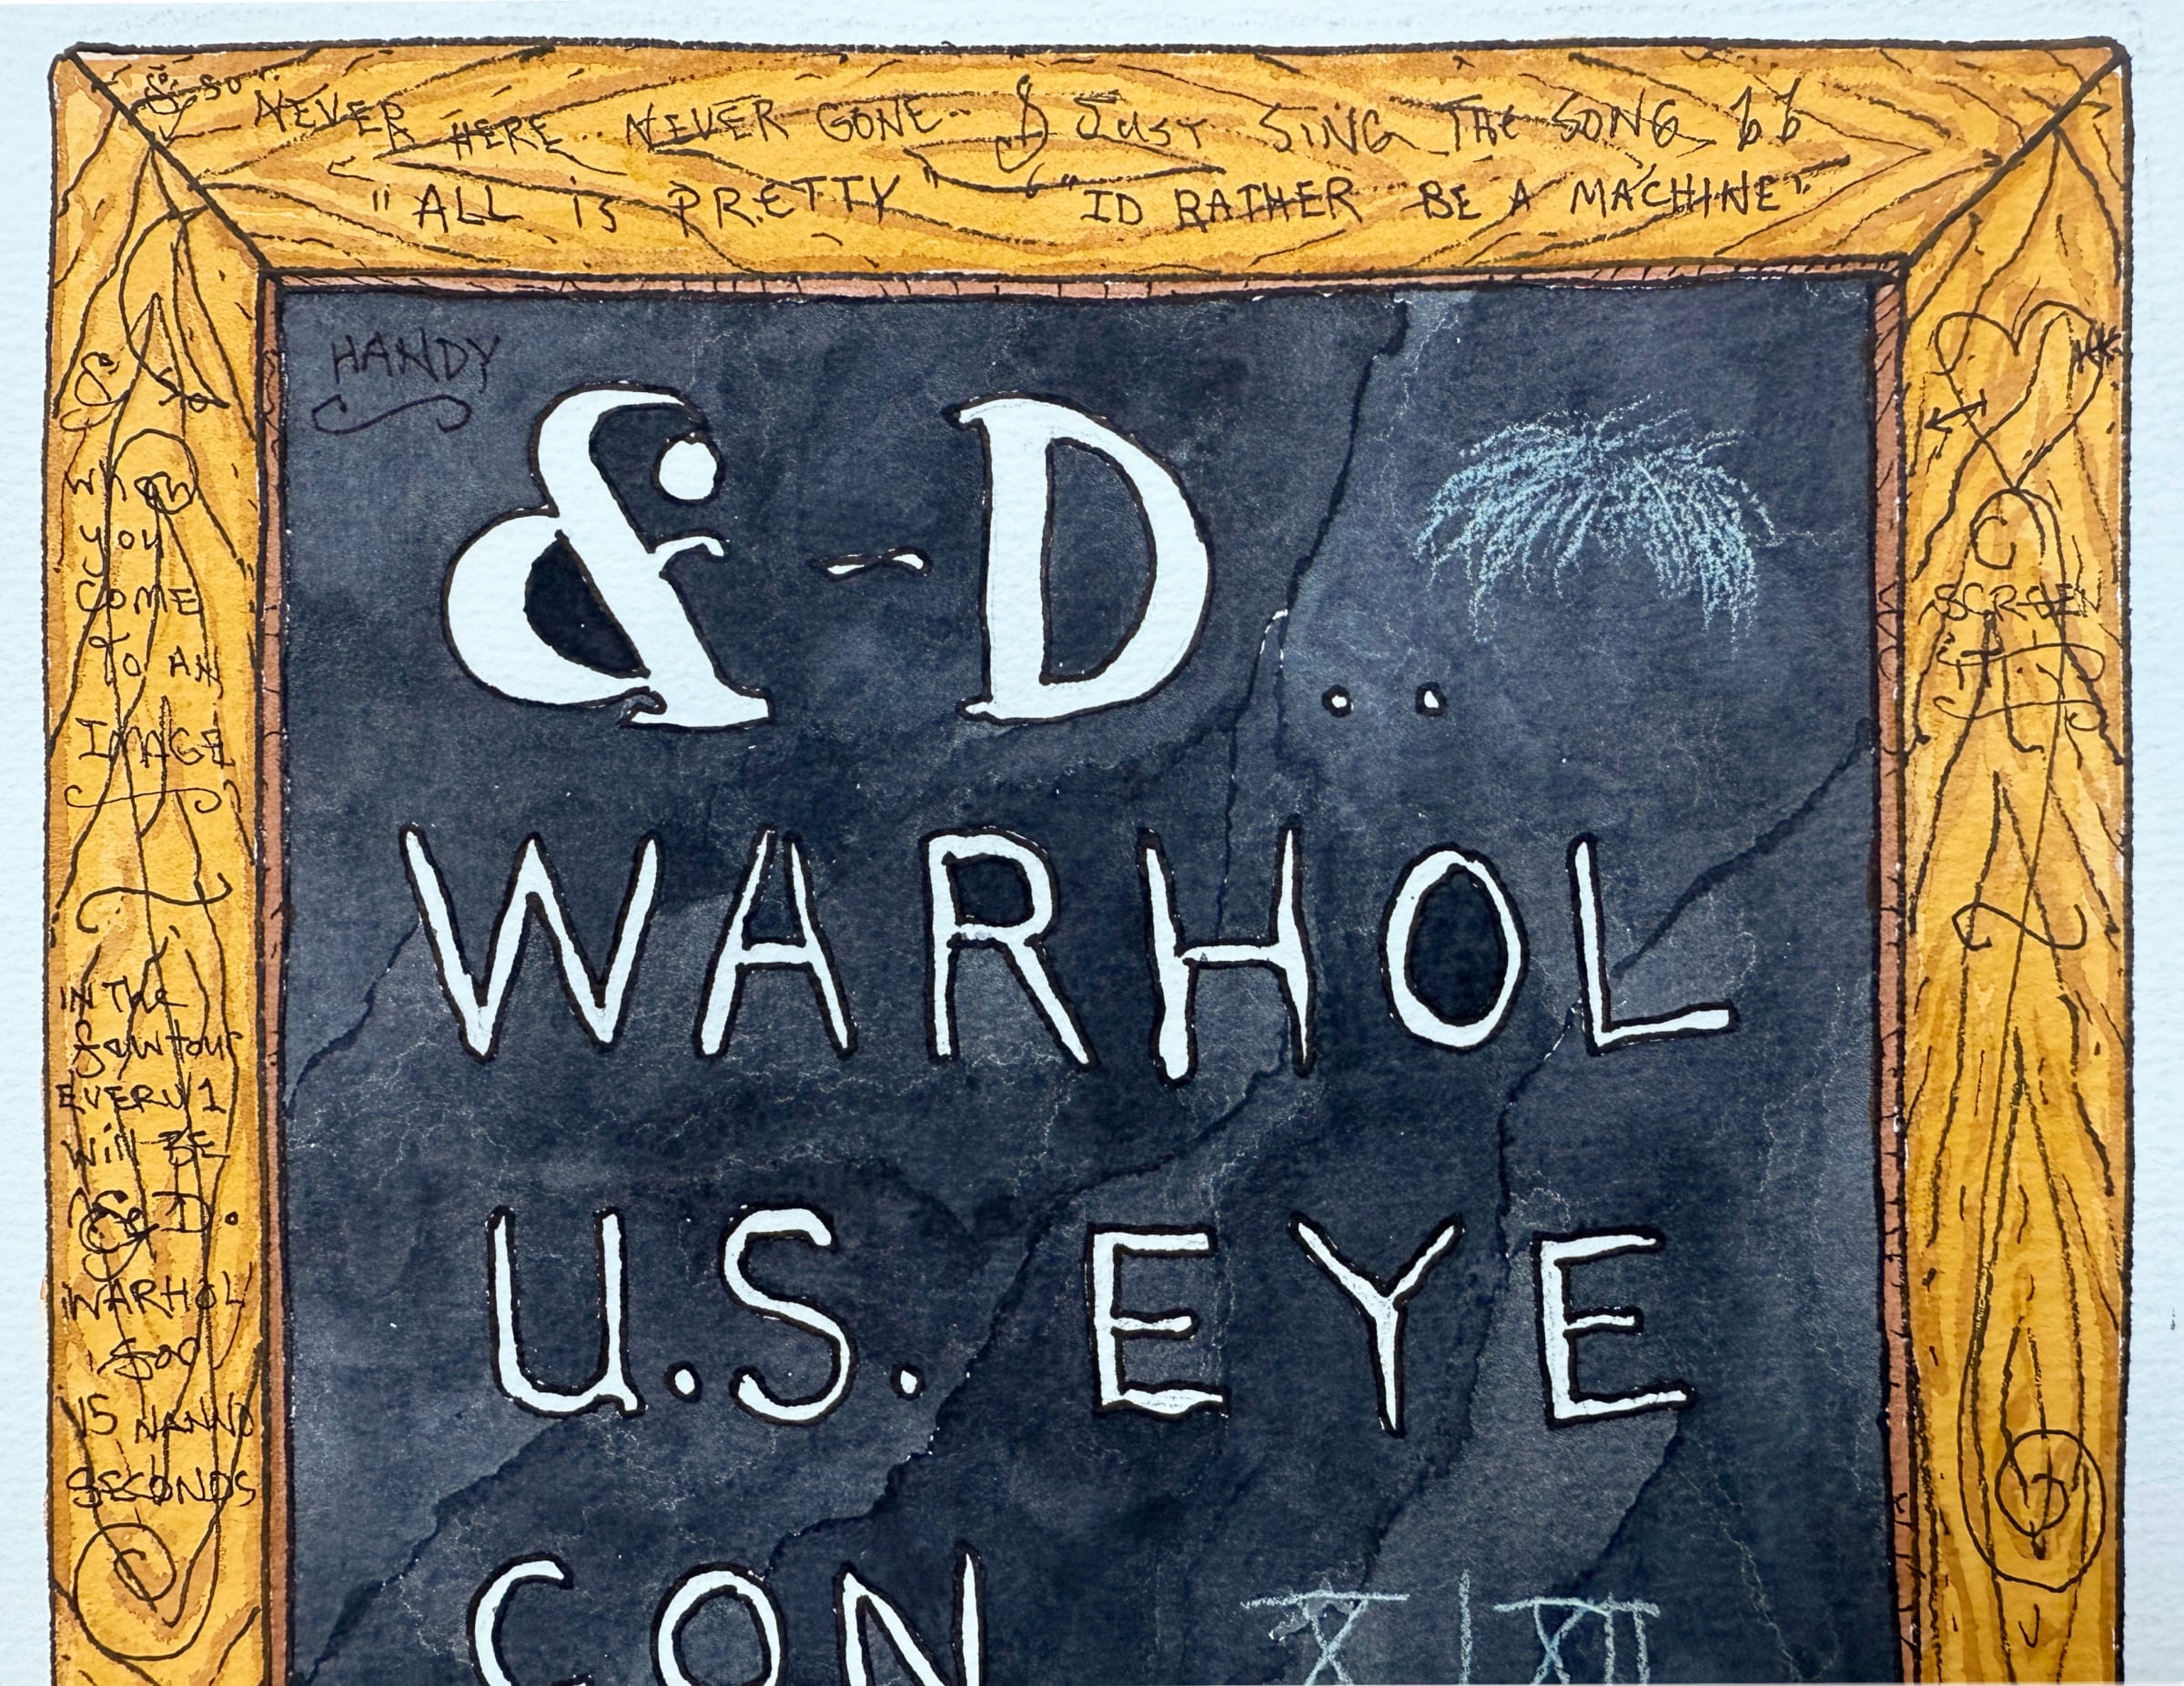 & so.. NEVER HERE.. NEVER GONE.. & JUST SING THE SONG
"ALL is PRETTY" "ID RATHER BE A MACHINE"
HANDY
& - D..
WARHOL
U.S. EYE
CON X | XII
& So
when
you
COME
To AN
IMAGE
IN The
fewtour
EVERY 1
will BE
& D.
WARHOL
for
15 NANNO
SECONDS
C
SCREEN